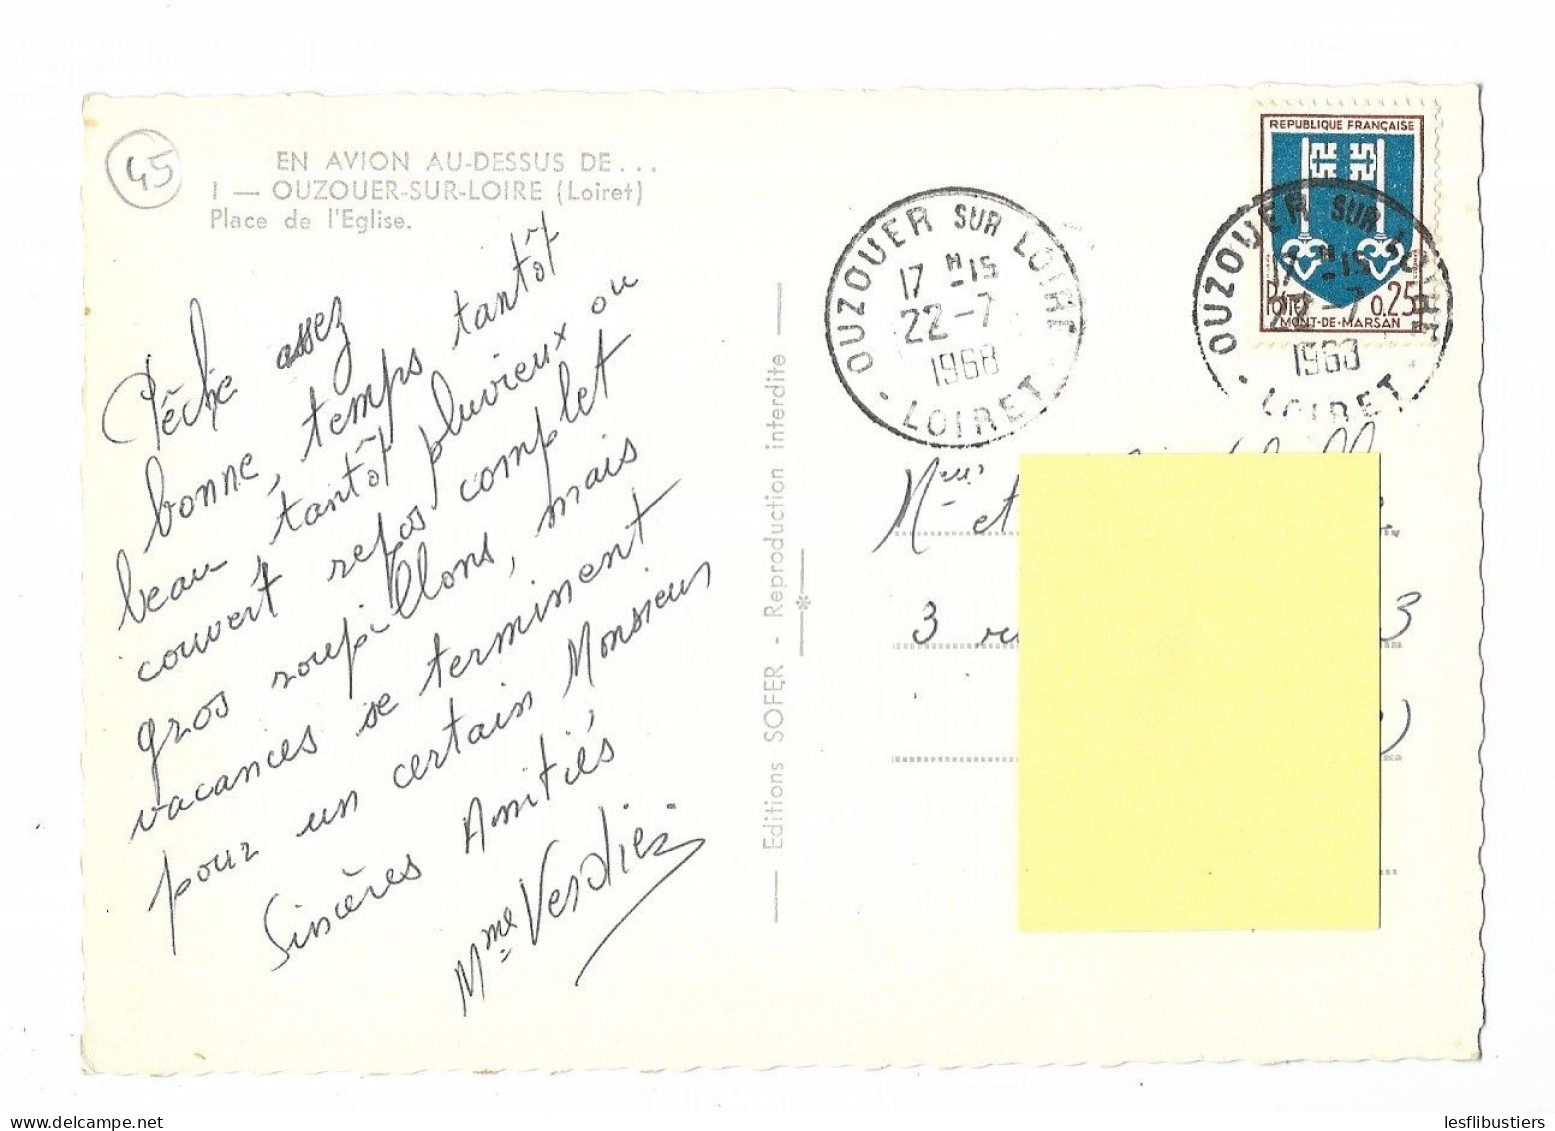 45
EN AVION AU-DESSUS DE...
1 — OUZOUER-SUR-LOIRE (Loiret)
Place de l'Eglise.
Pêche assez
bonne, temps tantôt
beau tantôt pluvieux ou
couvert repos complet
gros roupillons, mais
vacances se terminent
pour un certain Monsieur
Sincères Amitiés
Mme Verdier
Editions SOFER - Reproduction interdite
OUZOUER SUR LOIRE
17 H-15
22-7
1968
LOIRET
REPUBLIQUE FRANÇAISE
0,25
MONT-DE-MARSAN
OUZOUER SUR LOIRE
17 H-15
22-7
1968
LOIRET
et
3
3
lesflibustiers